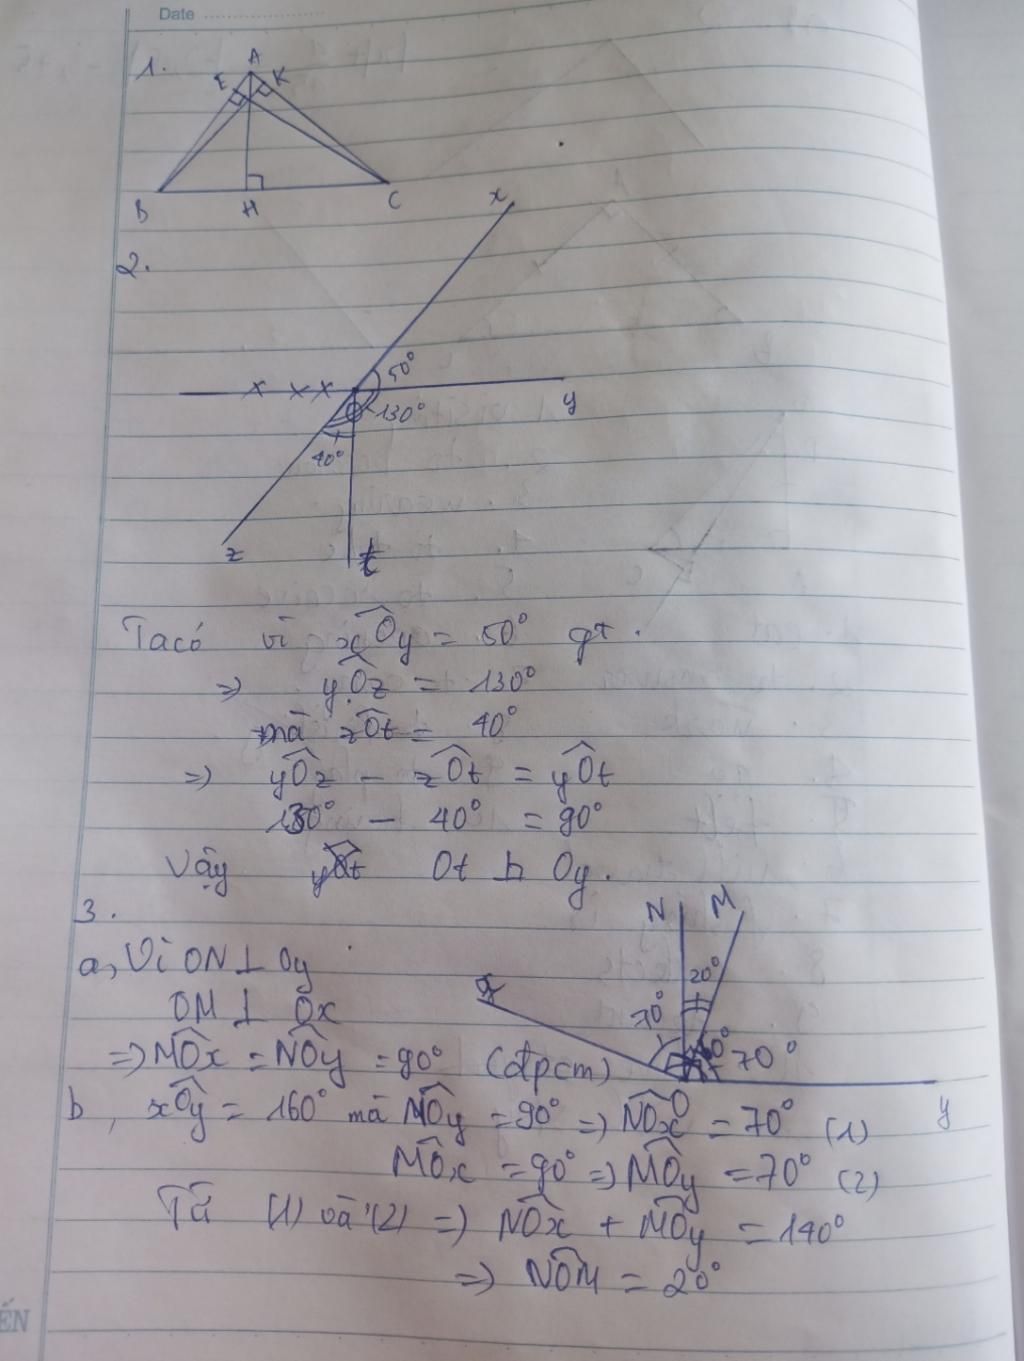 Date
1.
A
E K
B H C
2.
x
50°
y
O 130°
40°
z t
Ta có vì xOy = 50° gt.
=> yOz = 130°
mà zOt = 40°
=> yOz - zOt = yOt
130° - 40° = 90°
Vậy Ot ⊥ Oy.
3.
N M
a, Vì ON ⊥ Oy
20°
x
OM ⊥ Ox
70°
=> MOx = NOy = 90° (đpcm)
70°
O y
b, xOy = 160° mà NOy = 90° => NOx = 70° (1)
MOx = 90° => MOy = 70° (2)
Từ (1) và (2) => NOx + MOy = 140°
=> NOM = 20°
ẾN